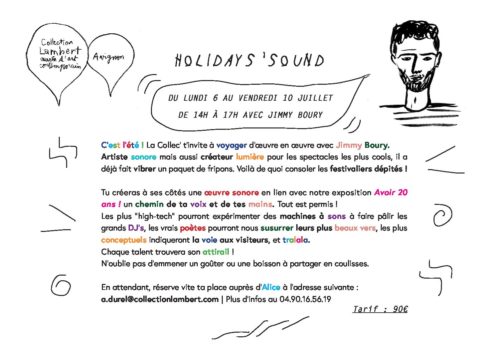 Collection
Lambert
musée d'art
contemporain
Avignon
HOLIDAYS'SOUND
DU LUNDI 6 AU VENDREDI 10 JUILLET
DE 14H À 17H AVEC JIMMY BOURY
C'est l'été ! La Collec' t'invite à voyager d'œuvre en œuvre avec Jimmy Boury.
Artiste sonore mais aussi créateur lumière pour les spectacles les plus cools, il a
déjà fait vibrer un paquet de fripons. Voilà de quoi consoler les festivaliers dépités !
Tu créeras à ses côtés une œuvre sonore en lien avec notre exposition Avoir 20
ans ! un chemin de ta voix et de tes mains. Tout est permis !
Les plus "high-tech" pourront expérimenter des machines à sons à faire pâlir les
grands DJ's, les vrais poètes pourront nous susurrer leurs plus beaux vers, les plus
conceptuels indiqueront la voie aux visiteurs, et tralala.
Chaque talent trouvera son attirail !
N'oublie pas d'emmener un goûter ou une boisson à partager en coulisses.
En attendant, réserve vite ta place auprès d'Alice à l'adresse suivante :
a.durel@collectionlambert.com | Plus d'infos au 04.90.16.56.19
Tarif : 90€